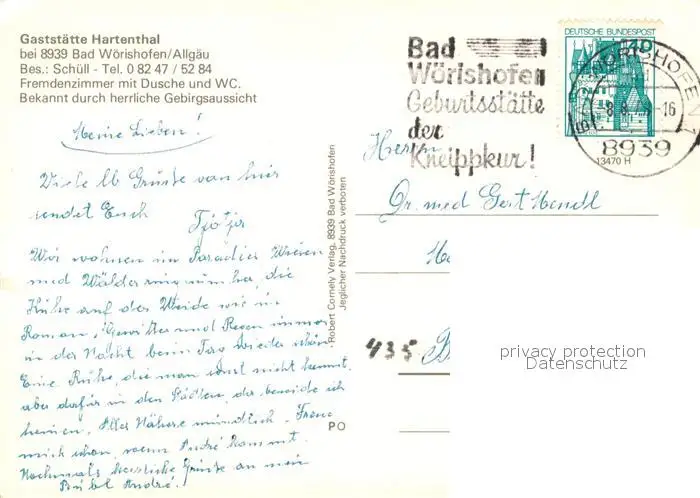 Gaststätte Hartenthal
bei 8939 Bad Wörishofen/Allgäu
Bes.: Schüll - Tel. 0 82 47 / 52 84
Fremdenzimmer mit Dusche und WC.
Bekannt durch herrliche Gebirgsaussicht
Meine Lieben!
Viele lb Grüße von hier
sendet Euch
Wir wohnen im Paradies Wiesen
und Wälder ringsumher, die
Kühe auf der Weide wie im
Roman, Gewitter und Regen immer
in der Nacht beim Tag wieder schön.
Eine Ruhe, die man sonst nicht kennt,
aber dafür in den Städten, da beneide ich
keinen. Alles Nähere mündlich. Freue
mich schon, wenn André kommt.
Nochmals herzliche Grüße an mein
André!
Robert Cornely Verlag, 8939 Bad Wörishofen
Jeglicher Nachdruck verboten
PO
Bad
Wörishofen
Geburtsstätte
der
Kneippkur!
DEUTSCHE BUNDESPOST
40
BAD WÖRISHOFEN
-16
8939
13470 H
Herrn
Dr. med Gert Hendl
435 B
privacy protection
Datenschutz